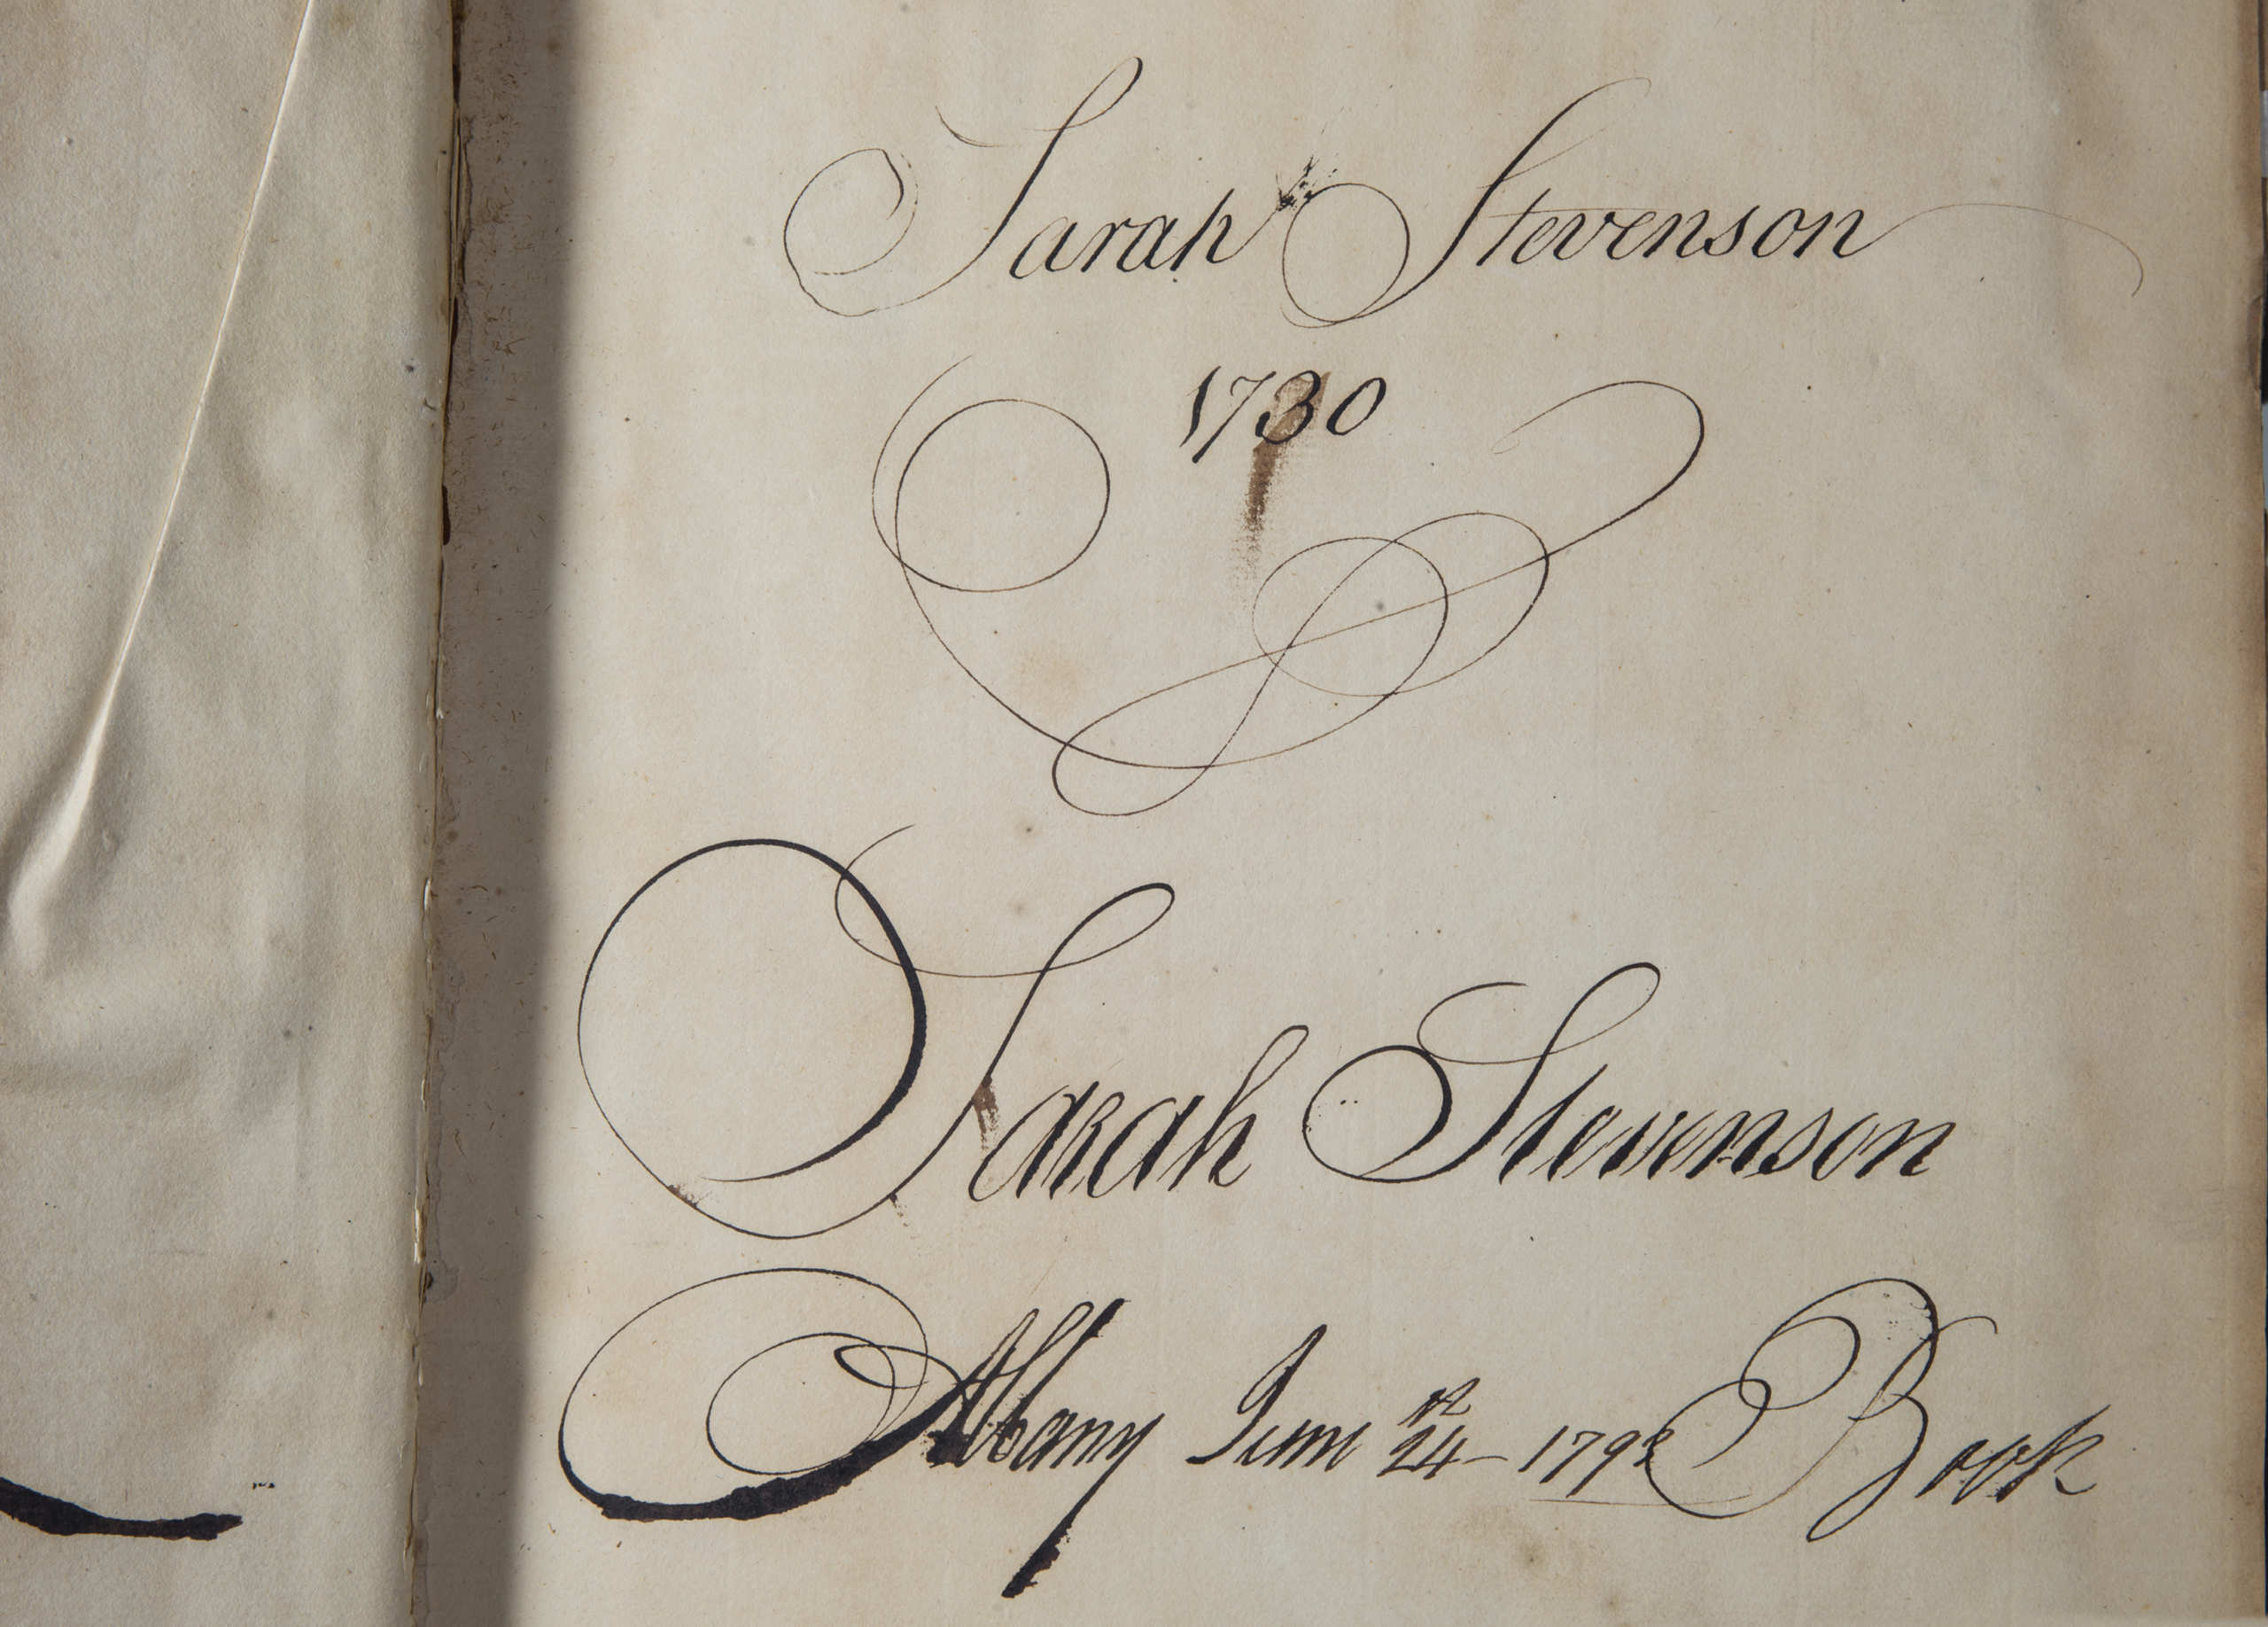 Sarah Stevenson
1730
Sarah Stevenson
Albany June 24 - 1793 Book